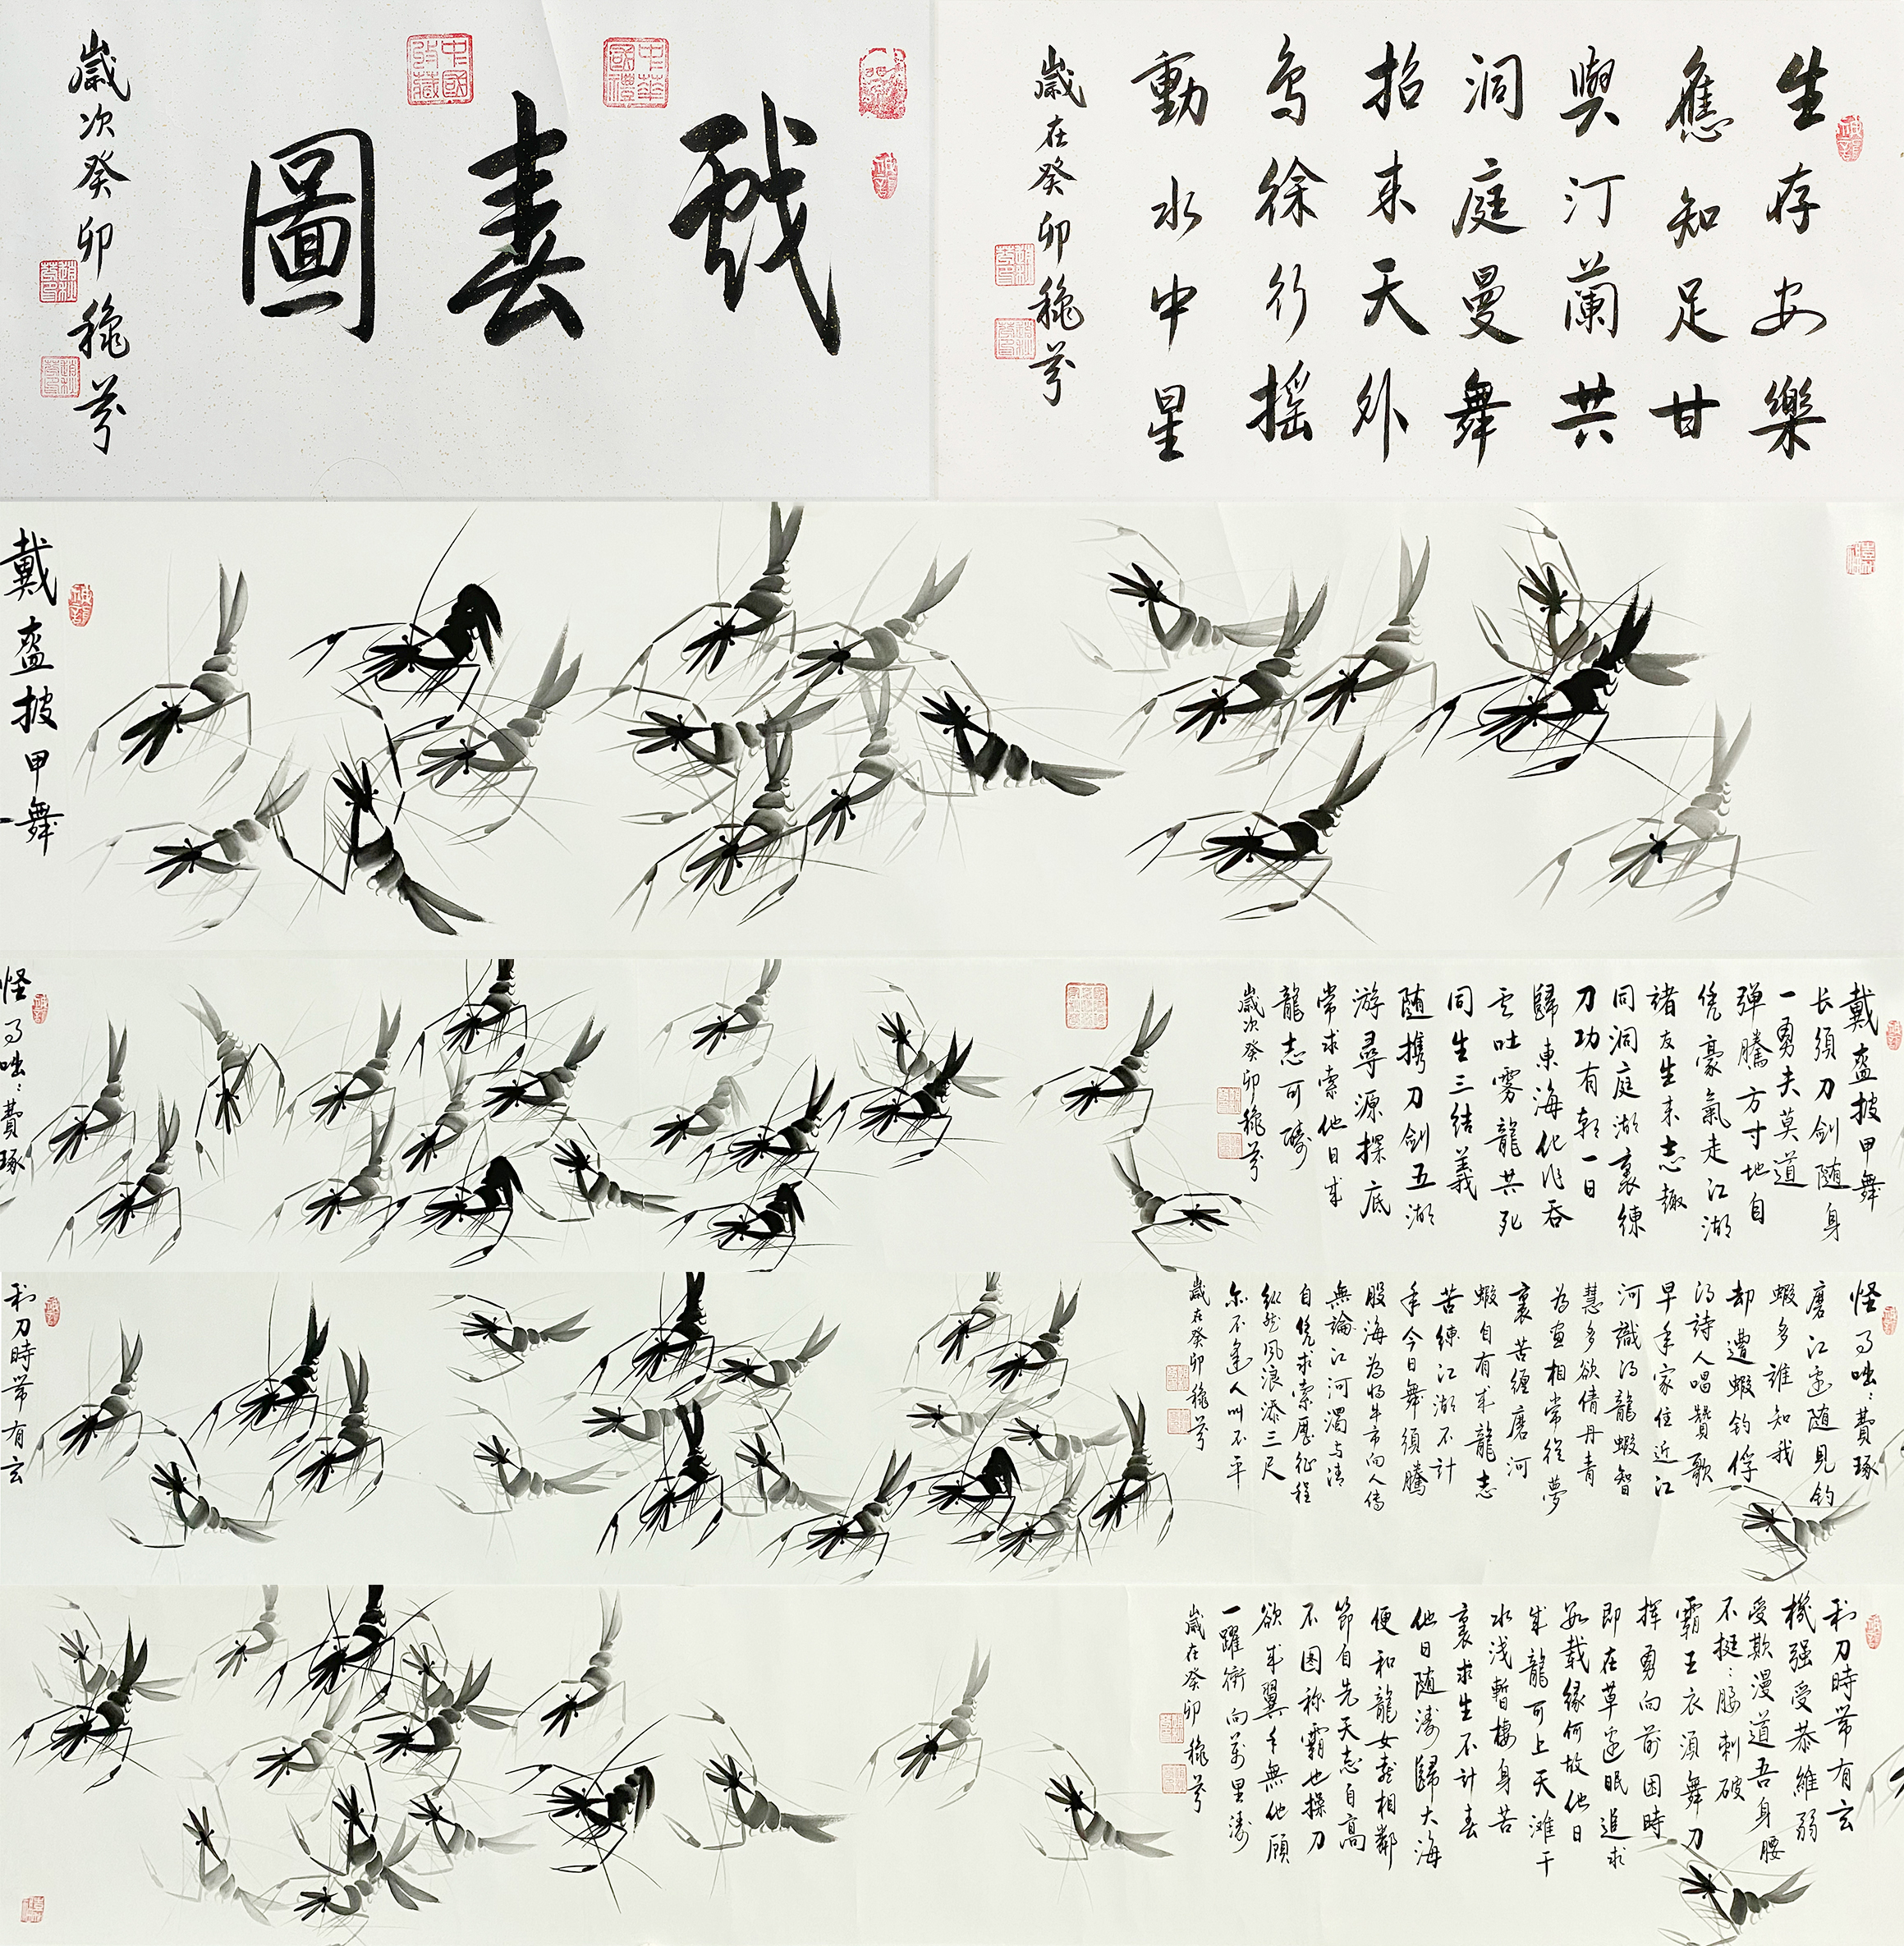 戲春圖
中華國禮
中國收藏
歲次癸卯穐
生存安樂
應知足甘
與汀蘭共
洞庭曼舞
招来天外
鳥徐行摇
動水中星
歲在癸卯穐
戴盔披甲舞
戴盔披甲舞
长須刀劍随身
一勇夫莫道
弹騰方寸地自
凭豪氣走江湖
諸友生来志趣
同洞庭湖裏練
刀功有朝一日
歸東海化作吞
云吐雾龍共死
同生三結義
随携刀劍五湖
游尋源探底
常求索他日成
龍志可酬
歲次癸卯穐
怪事咄咄費琢
怪事咄咄費琢
磨江邊随見钓
蝦多誰知我
却遭蝦钓俘
得詩人唱贊歌
早年家住近江
河識得龍蝦智
慧多欲倩丹青
為画相常從夢
裏苦纏磨河
蝦自有成龍志
苦練江湖不計
年今日舞須騰
股海為牛市向人傳
無論江河濁与清
自凭求索歷征程
縱然風浪添三尺
亦不逢人叫不平
歲在癸卯穐
利刀時带有玄
利刀時带有玄
機强受恭維弱
受欺漫道吾身腰
不挺腰刺破
霸王衣須舞刀
揮勇向前困時
即在草邊眠追求
数載緣何故他日
成龍可上天滩干
水浅暫棲身苦
裏求生不計春
他日随濤歸大海
便和龍女相鄰
節自先天志自高
不图称霸也操刀
欲成翼手無他顧
一躍衝向萬里濤
歲在癸卯穐